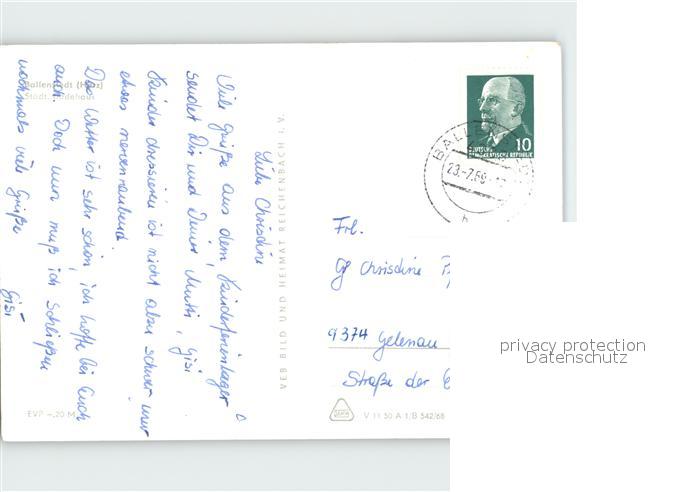 Ballenstedt (Harz)
Liebe Christine
Viele Grüße aus dem Kinderferienlager
sendet Dir und Deiner Mutti, Gisi
Kinder dressieren ist nicht aber schwer nur
etwas nervenraubend.
Das Wetter ist sehr schön, ich hoffe bei Euch
auch. Doch nun muß ich schließen
nochmals viele Grüße
Gisi
EVP -,20 M
VEB BILD UND HEIMAT REICHENBACH I. V.
10
DEUTSCHE
DEMOKRATISCHE REPUBLIK
BALLENST
23.-7.69
Frl.
Christine
9374 Gelenau
Straße der
V 11 50 A 1/B 542/68
privacy protection
Datenschutz